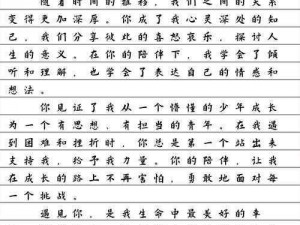 随着时间的推移，我们之间的关系
变得更加深厚。你成了我心灵深处的知
己，我们分享彼此的喜怒哀乐，探讨人
生的意义。在你的陪伴下，我学会了倾
听和理解，也学会了表达自己的情感和
想法。
你见证了我从一个懵懂的少年成长
为一个有思想，有担当的青年。在我遇
到困难和挫折时，你总是第一个站出来
支持我，给予我力量。你的陪伴，让我
在成长的路上不再害怕，勇敢地面对每
一个挑战。
遇见你，是我生命中最美好的事